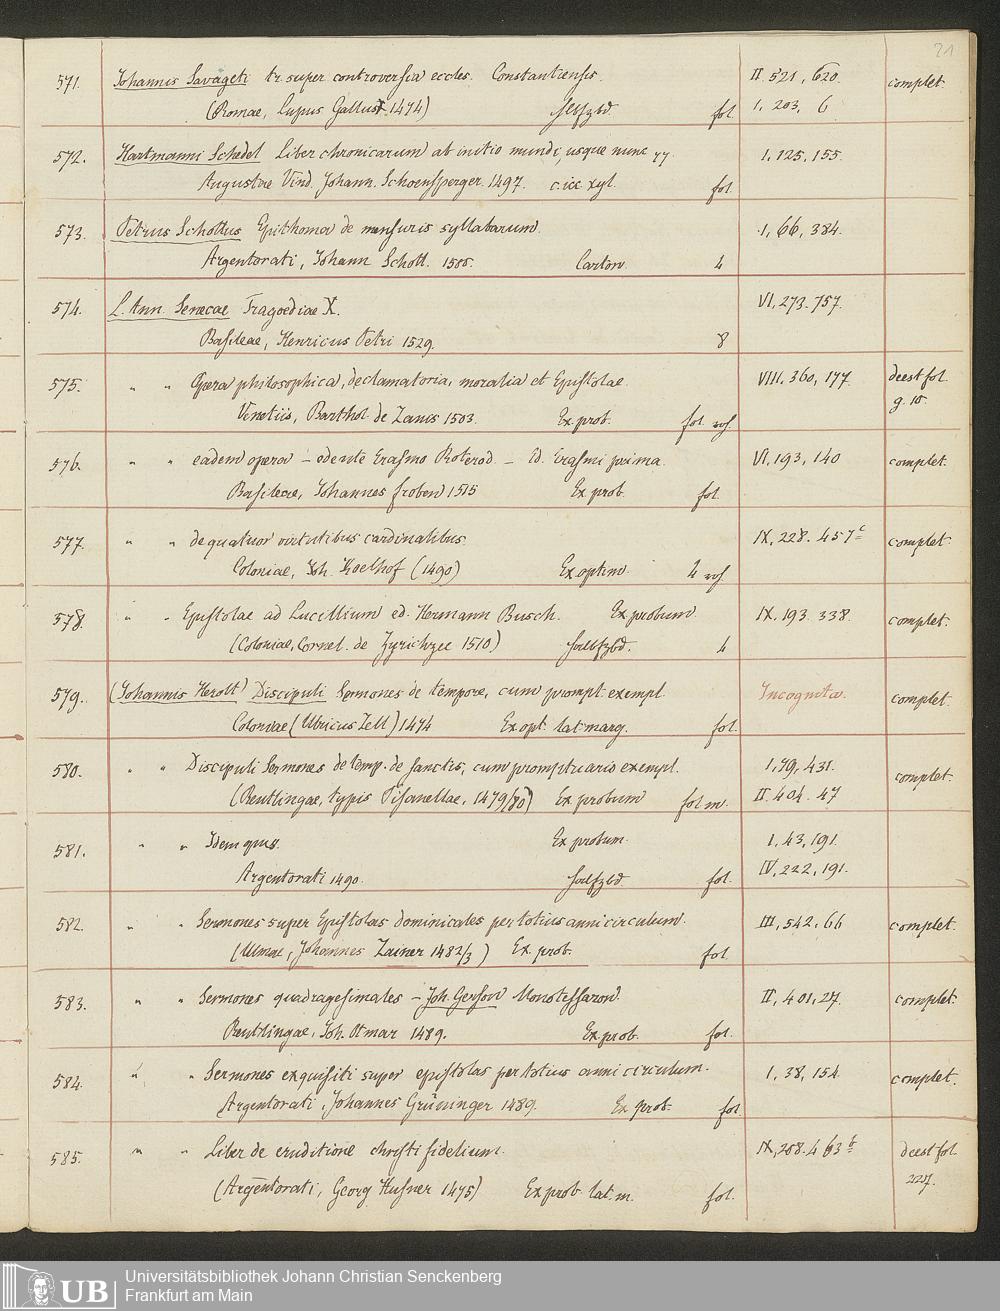 21
571. Johannis Savageti tr. super controversia eccles. Constantiensis. II. 521, 620. complet.
(Romae, Lupus Gallus 1474) Hlfzbd. fol. I. 203, 6
572. Hartmanni Schedel Liber chronicarum ab initio mundi usque nunc I, 125, 155.
Augustae Vind. Johann. Schoensperger. 1497. c. icc xyl. fol.
573. Petrus Schottus Epithoma de mensuris syllabarum. I, 66, 384.
Argentorati, Johann Schott. 1500. Carton. 4
574. L. Ann. Senecae Tragoediae X. VI, 273. 757.
Basileae, Henricus Petri 1529. 8
575. " " Opera philosophica, declamatoria, moralia et Epistolae. VIII. 360, 177. deest fol.
Venetiis, Barthol. de Zanis 1503. Ex. prob. fol. g. 10.
576. " " eadem opera – edente Erasmo Roterod. – Ed. Erasmi prima. VI, 193, 140 complet.
Basileae, Johannes Froben 1515 Ex prob. fol.
577. " " de quatuor virtutibus cardinalibus. IX, 228. 457c complet.
Coloniae, Joh. Koelhof (1490) Ex optim. 4
578. " " Epistolae ad Lucillium ed. Hermann Busch. Ex probum IX, 193. 338. complet.
(Coloniae, Cornel. de Zyrichzee 1510) Halbfzbd. 4
579. (Johannis Herolt) Discipuli Sermones de tempore, cum prompt. exempl. Incognita. complet.
Coloniae (Ulricus Zell) 1474 Ex opt. lat. marg. fol.
580. " " Discipuli Sermones de temp. de sanctis, cum promptuario exempl. I, 79, 431. complet.
(Reutlingae, typis Pisanellae, 1479/80) Ex probum fol m. II. 404. 47
581. " " Idem opus. Ex probum. I. 43, 191.
Argentorati 1490. Halfzbd. fol. IV, 222, 191.
582. " " Sermones super Epistolas dominicales per totius anni circulum. III, 542, 66 complet.
(Ulmae, Johannes Zainer 1482/3) Ex. prob. fol.
583. " " Sermones quadragesimales – Joh. Gerson Monotessaron. II, 401, 27. complet.
Reutlingae, Joh. Otmar 1489. Ex prob. fol.
584. " " Sermones exquisiti super epistolas per totius anni circulum. I, 38, 154 complet.
Argentorati, Johannes Grüninger 1489. Ex prob. fol.
585. " " Liber de eruditione christi fidelium. IX, 208. 463b deest fol.
(Argentorati, Georg Husner 1475) Ex prob. lat. m. fol. 227.
UB
Universitätsbibliothek Johann Christian Senckenberg
Frankfurt am Main